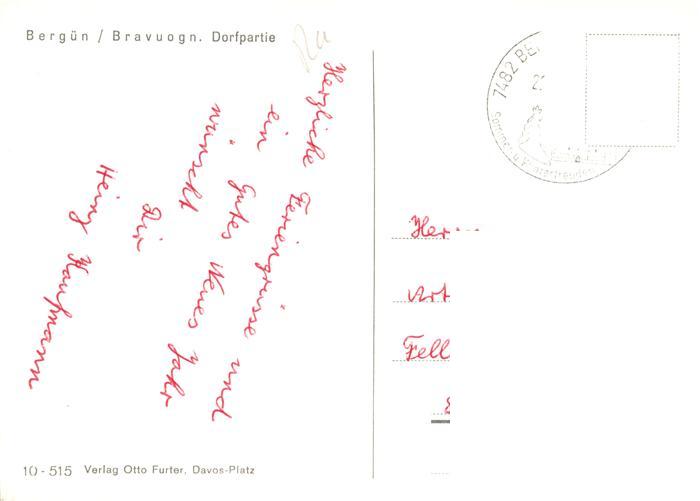 Bergün / Bravuogn. Dorfpartie
Herzliche Feriengrüsse und
ein Gutes Neues Jahr
wünscht
Dir
Heinz Kaufmann
7482 BE
Sommer- u. Winterfreuden
Her
Art
Fell
10-515 Verlag Otto Furter, Davos-Platz